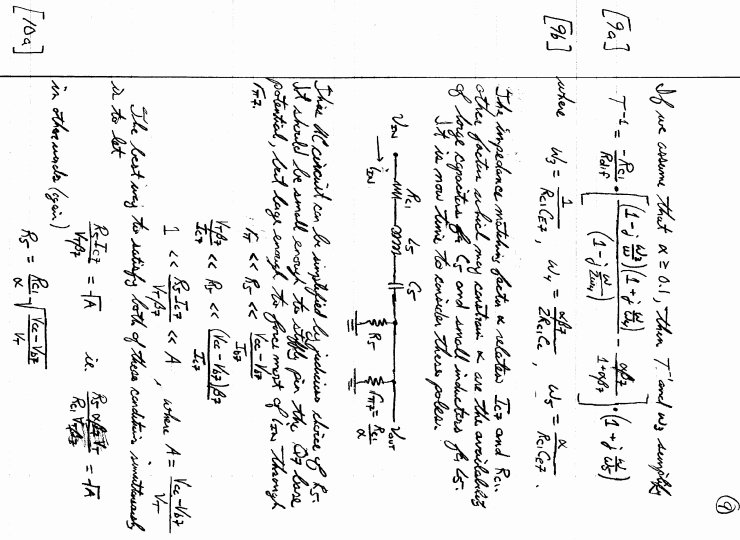 ⑨
If we assume that α ≥ 0.1, then T⁻¹ and ω₃ simplify
[9a] T⁻¹ = -Rc1/Rdif • [ (1 - j ω₃/ω)(1 + j ω/ω₄) / (1 - j ω/2ω₄) - αβ7/(1+αβ7) ] • (1 + j ω/ω₅)
[9b] where ω₃ = 1/(Rc1 CE7), ω₄ = αβ7/(2Rc1Cc), ω₅ = α/(Rc1 CE7).
The impedance matching factor α relates Ic7 and Rc1.
Other factors which may constrain α are the availability
of large capacitors for C5 and small inductors for L5.
It is now time to consider these poles.
Rc1 L5 C5
VIN VOUT
→ iIN
R5 rπ7 = Rc1/α
This AC circuit can be simplified by judicious choice of R5.
It should be small enough to stiffly pin the Q7 base
potential, but large enough to force most of iIN through
rπ7.
∴ rπ << R5 << (Vcc - Vb7)/Ib7
VTβ7/Ic7 << R5 << (Vcc - Vb7)β7/Ic7
1 << R5 Ic7/(VTβ7) << A, where A = (Vcc - Vb7)/VT
The best way to satisfy both of these conditions simultaneously
is to let
R5 Ic7/(VTβ7) = √A i.e. R5 αβ7VT/(Rc1 VTβ7) = √A
in other words (gain)
[10a] R5 = Rc1/α √((Vcc - Vb7)/VT)